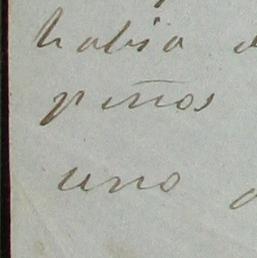 habia
piños
uno